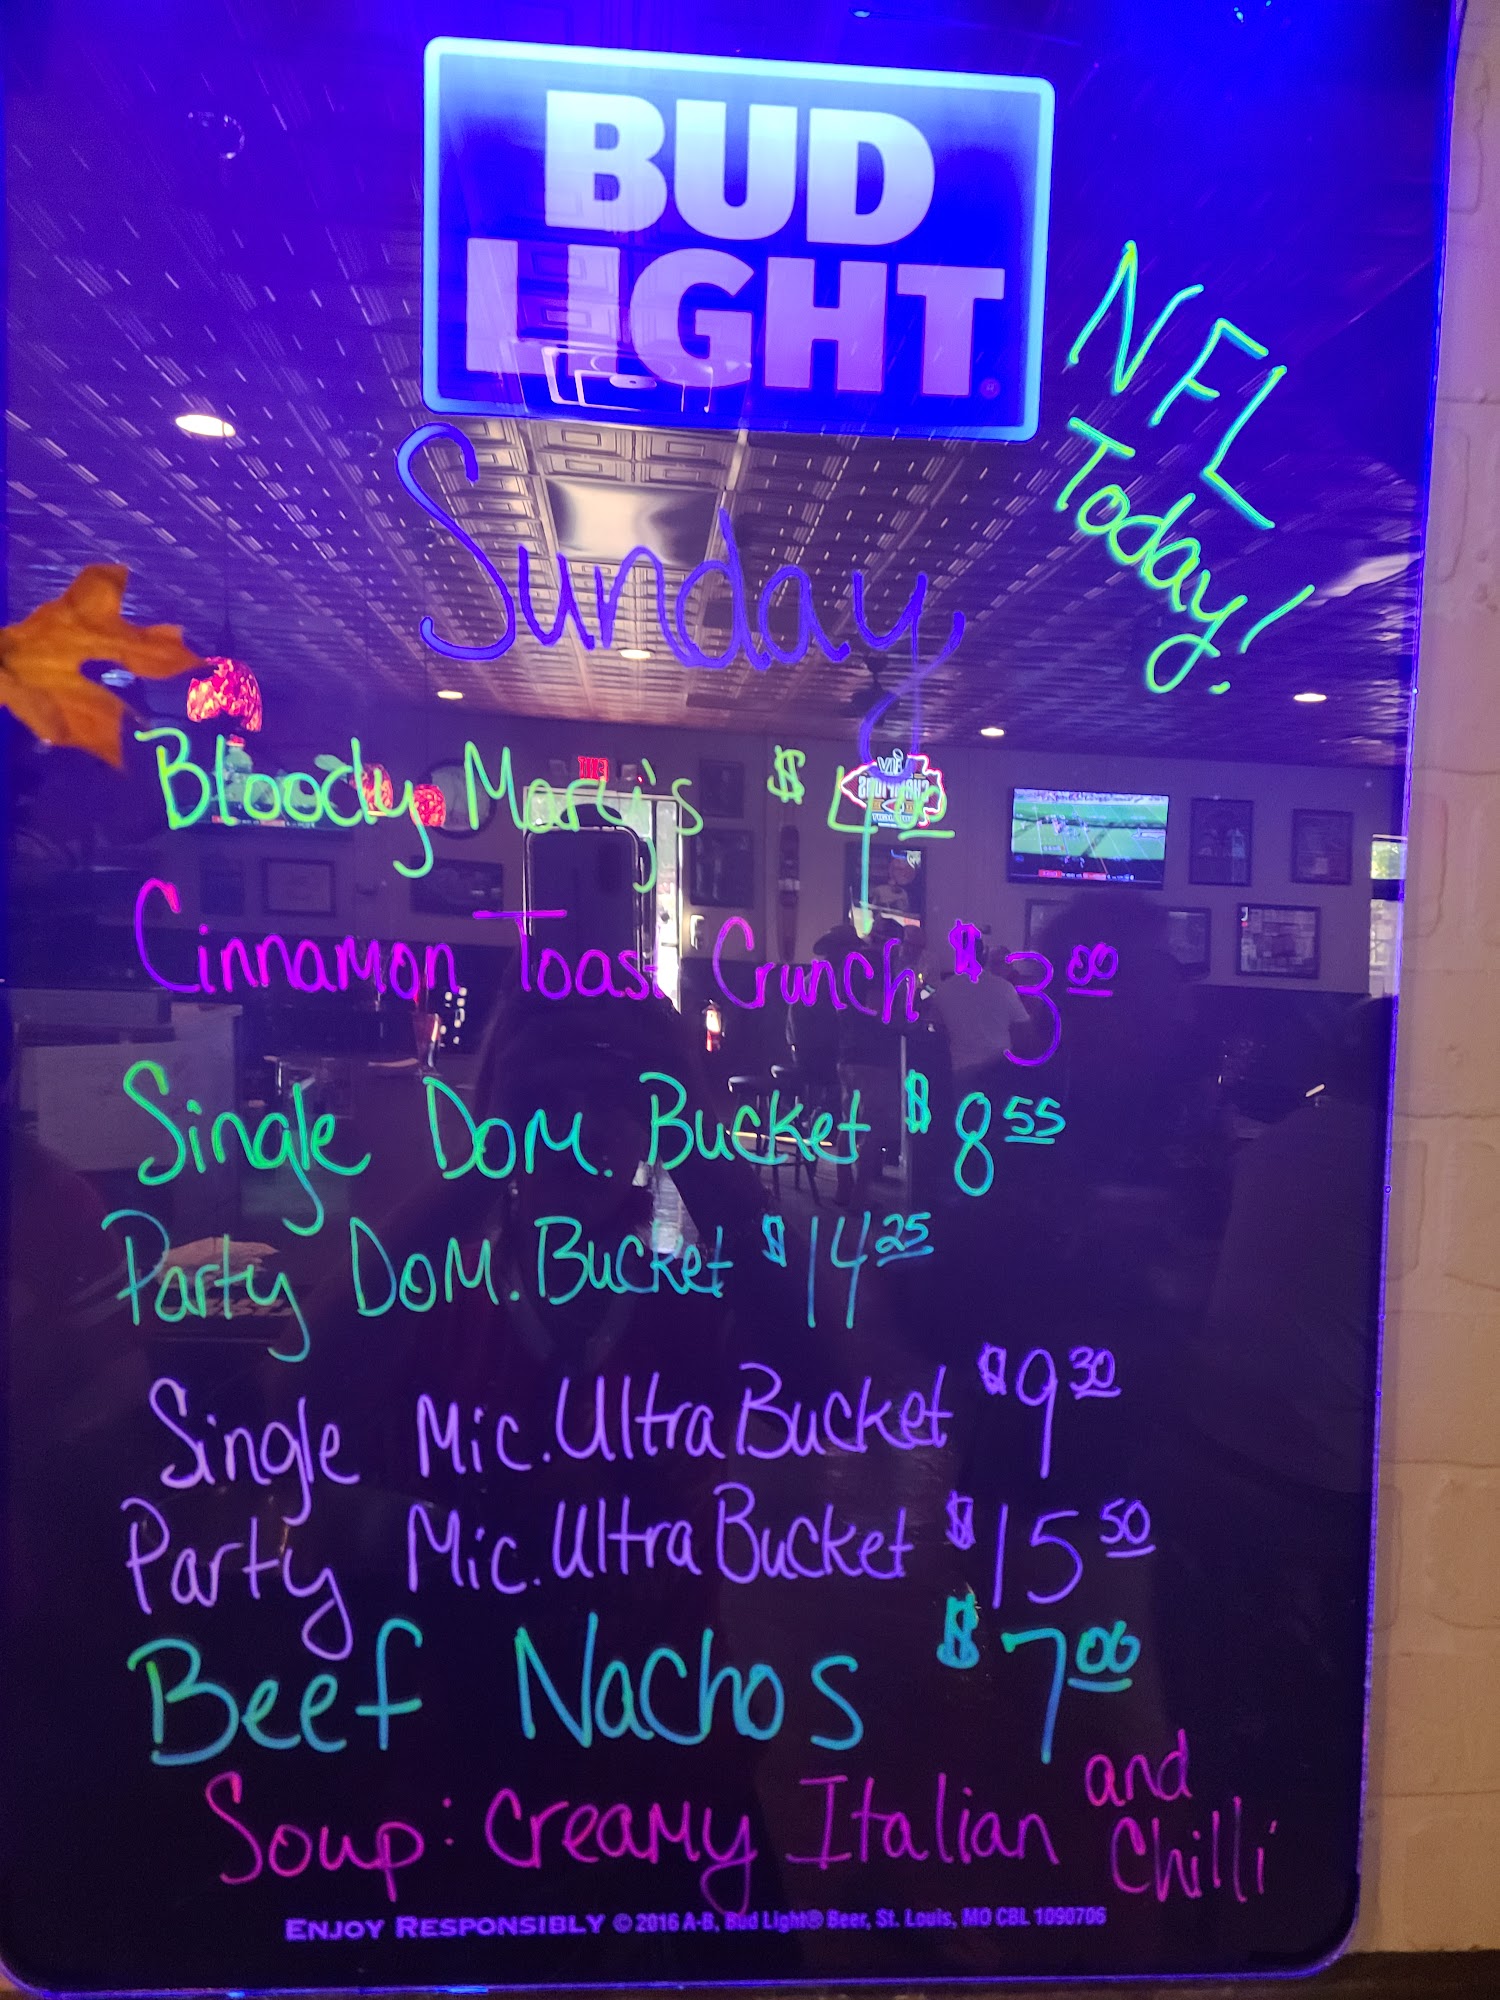 BUD
LIGHT
NFL
Today!
Sunday
Bloody Mary's $4
Cinnamon Toast Crunch $3 00
Single Dom. Bucket $8 55
Party Dom. Bucket $14 25
Single Mic. Ultra Bucket $9 30
Party Mic. Ultra Bucket $15 50
Beef Nachos $7 00
Soup: Creamy Italian and
Chilli
ENJOY RESPONSIBLY © 2016 A-B, Bud Light® Beer, St. Louis, MO CBL 1090706